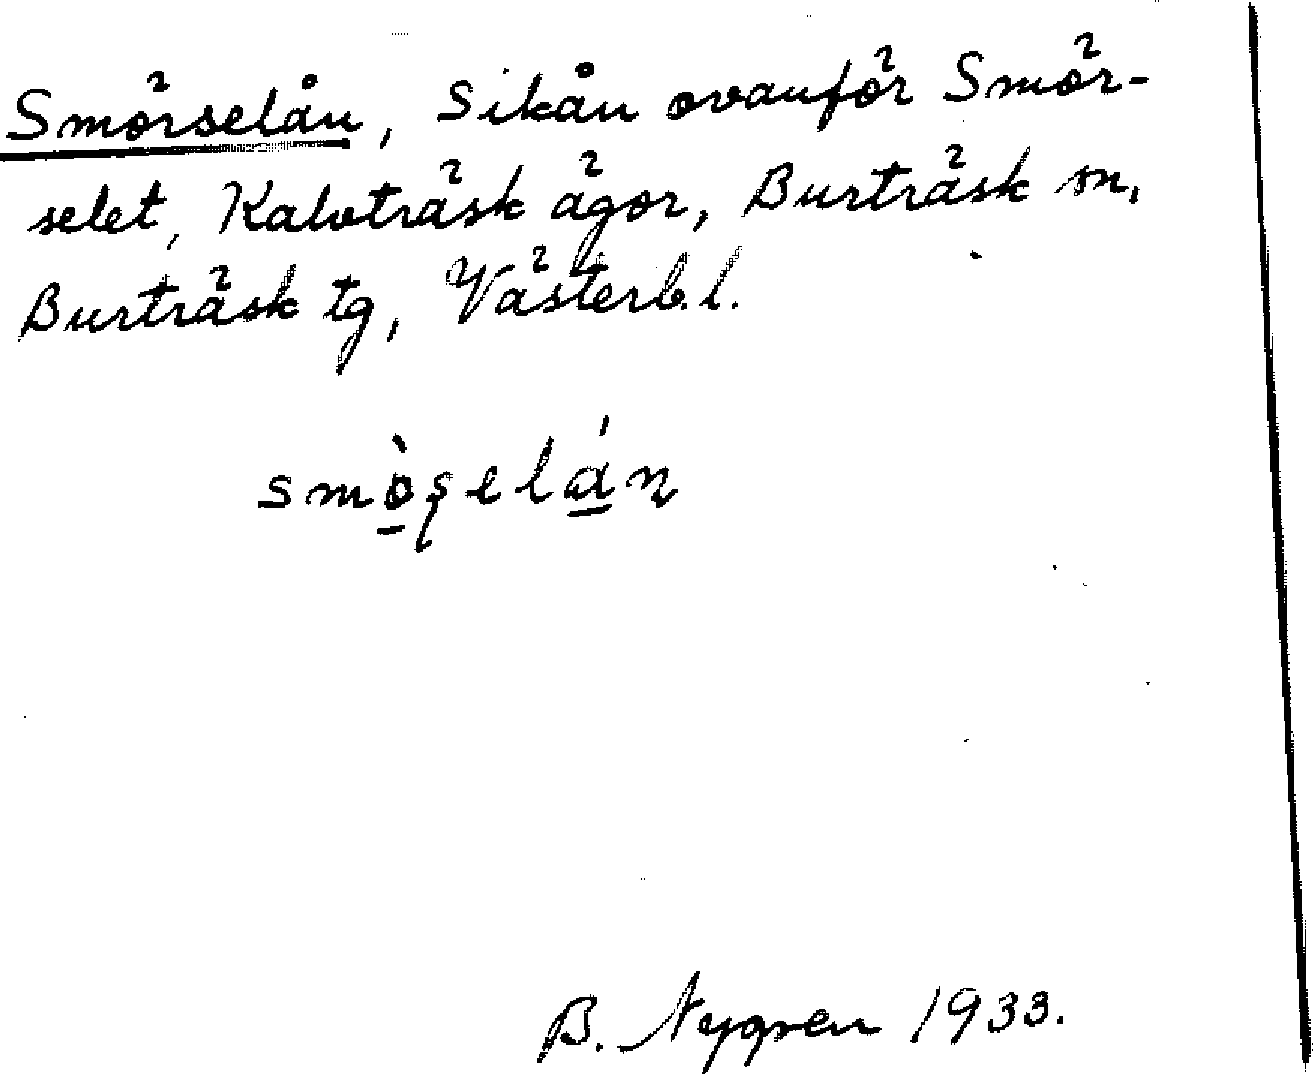 Smörselån, Sikån ovanför Smör-
selet, Kalvträsk ägor, Burträsk sn,
Burträsk tg, Västerb. l.
smò̠ʂelá̠n
B. Nygren 1933.